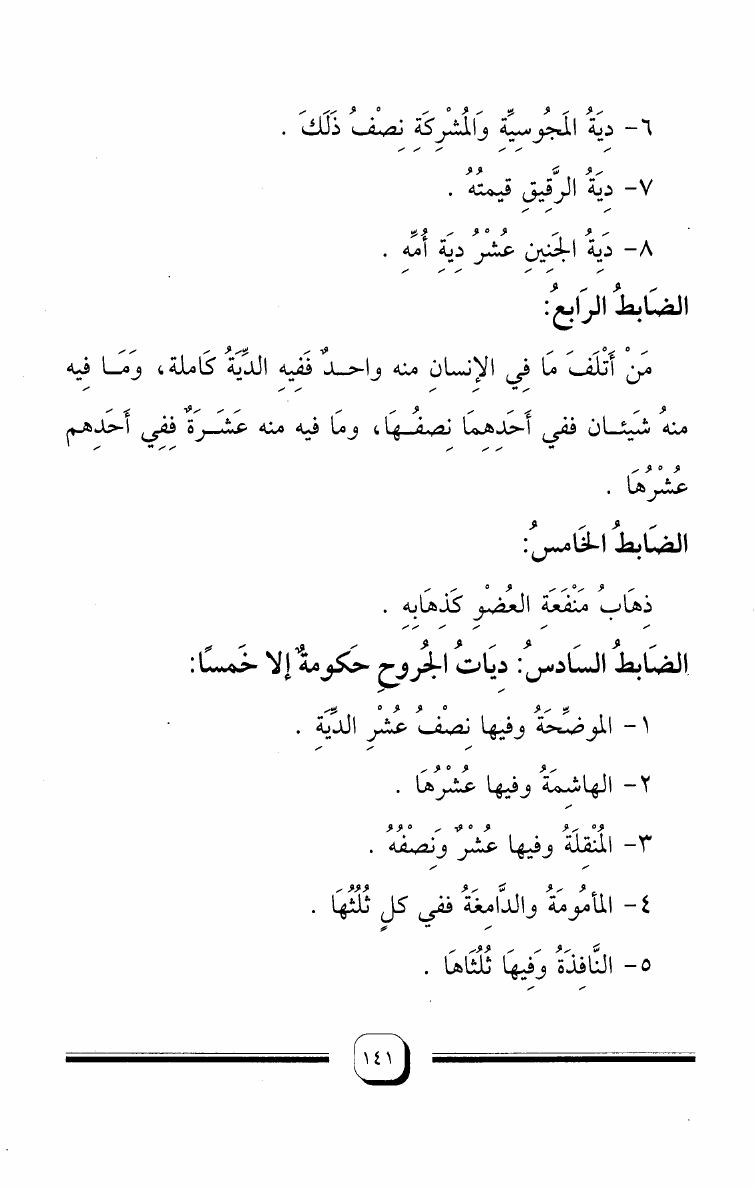 ٦- دِيَةُ المَجُوسِيَّةِ وَالمُشْرِكَةِ نِصْفُ ذَلَكَ .
٧- دِيَةُ الرَّقِيقِ قيمتُهُ .
٨- دَيَةُ الجَنِينِ عُشْرُ دِيَةِ أُمِّهِ .
الضَابطُ الرَابعُ:
مَنْ أَتْلَفَ مَا فِي الإنسانِ منه واحدٌ فَفِيهِ الدِّيَةُ كَاملة، وَمَا فِيه
منهُ شَيئان ففي أَحَدِهِمَا نصفُهَا، ومَا فيه منه عَشَرَةٌ فَفِي أَحَدِهم
عُشْرُهَا .
الضَابطُ الخَامسُ:
ذهَابُ مَنْفَعَةِ العُضْوِ كَذِهَابِهِ .
الضَابطُ السَادسُ: دِيَاتُ الجُروحِ حَكومةٌ إلا خَمسًا:
١- الموضِّحَةُ وفيها نِصْفُ عُشْرِ الدِّيَةِ .
٢- الهاشِمَةُ وفيها عُشْرُهَا .
٣- المُنْقِلَةُ وفيها عُشْرٌ وَنِصْفُهُ .
٤- المأمُومَةُ والدَّامِغَةُ ففي كلٍ ثُلُثُهَا .
٥- النَّافِذَةُ وَفِيهَا ثُلُثَاهَا .
١٤١